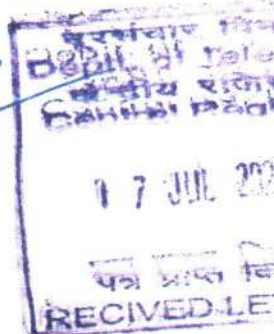 दूरसंचार वि
Deptt. of Tele
केन्द्रीय रजि
Central Reg
17 JUL 202
पत्र प्राप्त कि
RECIVED LE